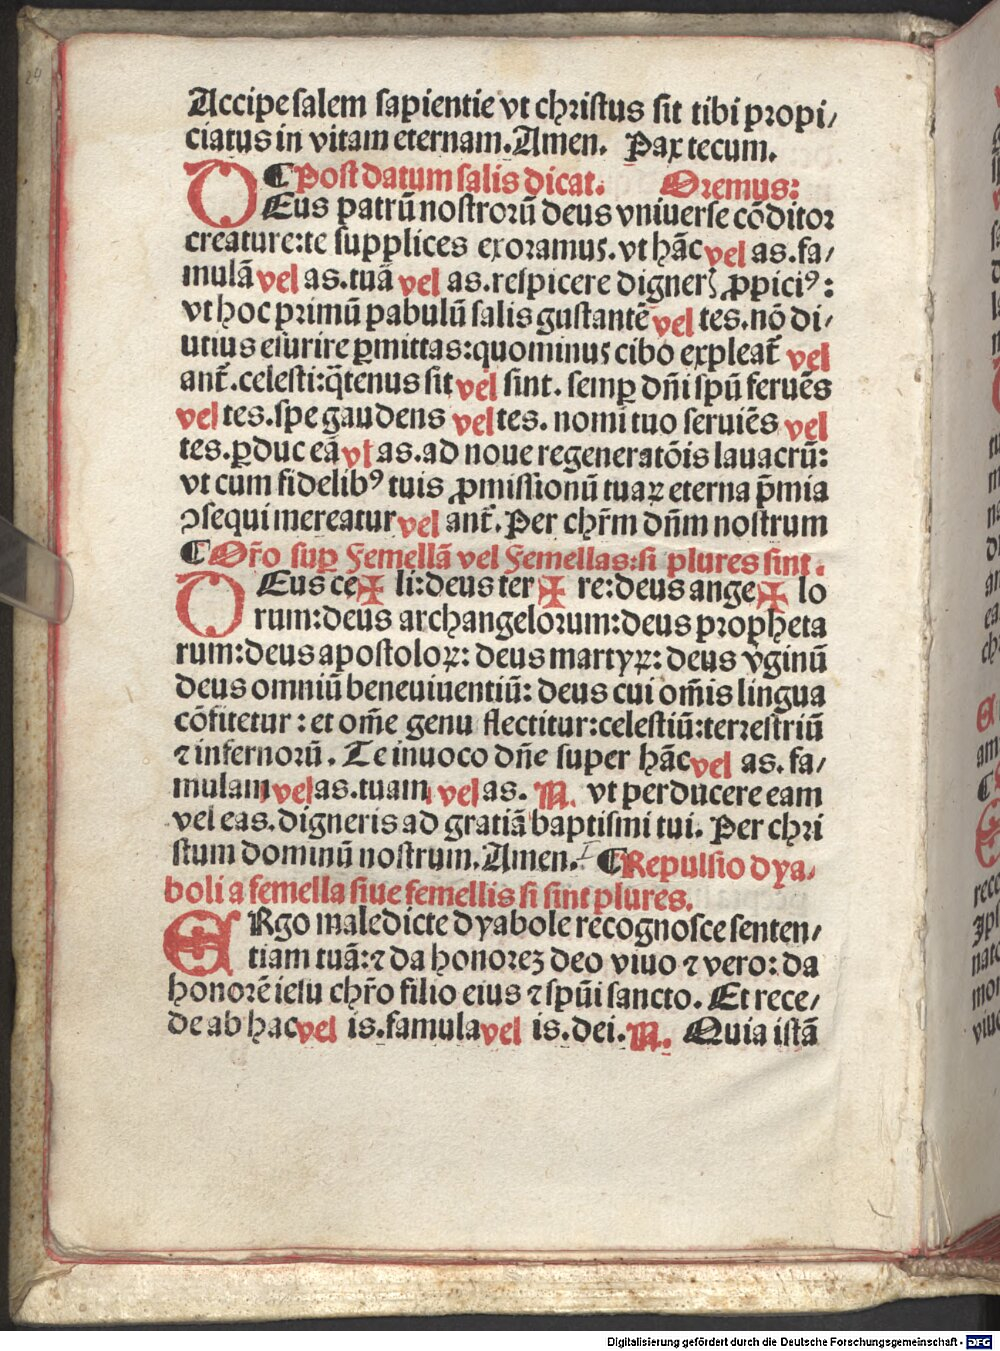 Accipe salem sapientie vt christus sit tibi propi/
ciatus in vitam eternam. Amen. Pax tecum.
¶ Post datum salis dicat. Oremus:
DEus patrū nostrorū deus vniuerse cōditor
creature: te supplices exoramus. vt hāc vel as. fa/
mulā vel as. tuā vel as. respicere digneris ꝓpiciꝰ:
vt hoc primū pabulū salis gustantē vel tes. nō di/
utius esurire ꝑmittas: quominus cibo expleat̄ vel
ant̄. celesti: q̄tenus sit vel sint. semꝑ dn̄i spū feruēs
vel tes. spe gaudens vel tes. nomī tuo seruiēs vel
tes. ꝑduc eā vl as. ad noue regeneratōis lauacrū:
vt cum fidelibꝰ tuis ꝓmissionū tuaꝝ eterna p̄mia
ↄsequi mereatur vel ant̄. Per chr̄m dn̄m nostrum
¶ Or̄o suꝑ Femellā vel Femellas: si plures sint.
DEus ce✠li: deus ter✠re: deus ange✠lo
rum: deus archangelorum: deus propheta
rum: deus apostoloꝝ: deus martyꝝ: deus v̄ginū
deus omniū bene viuentiū: deus cui om̄is lingua
cōfitetur: et om̄e genu flectitur: celestiū: terrestriū
⁊ infernorū. Te inuoco dn̄e super hāc vel as. fa/
mulam vel as. tuam vel as. N. vt perducere eam
vel eas. digneris ad gratiā baptismi tui. Per chri
stum dominū nostrum. Amen. ¶ Repulsio dya/
boli a femella siue femellis si sint plures.
ERgo maledicte dyabole recognosce senten/
tiam tuā: ⁊ da honorez deo viuo ⁊ vero: da
honorē iesu chr̄o filio eius ⁊ spūi sancto. Et rece/
de ab hac vel is. famula vel is. dei. N. Quia istā
Digitalisierung gefördert durch die Deutsche Forschungsgemeinschaft - DFG